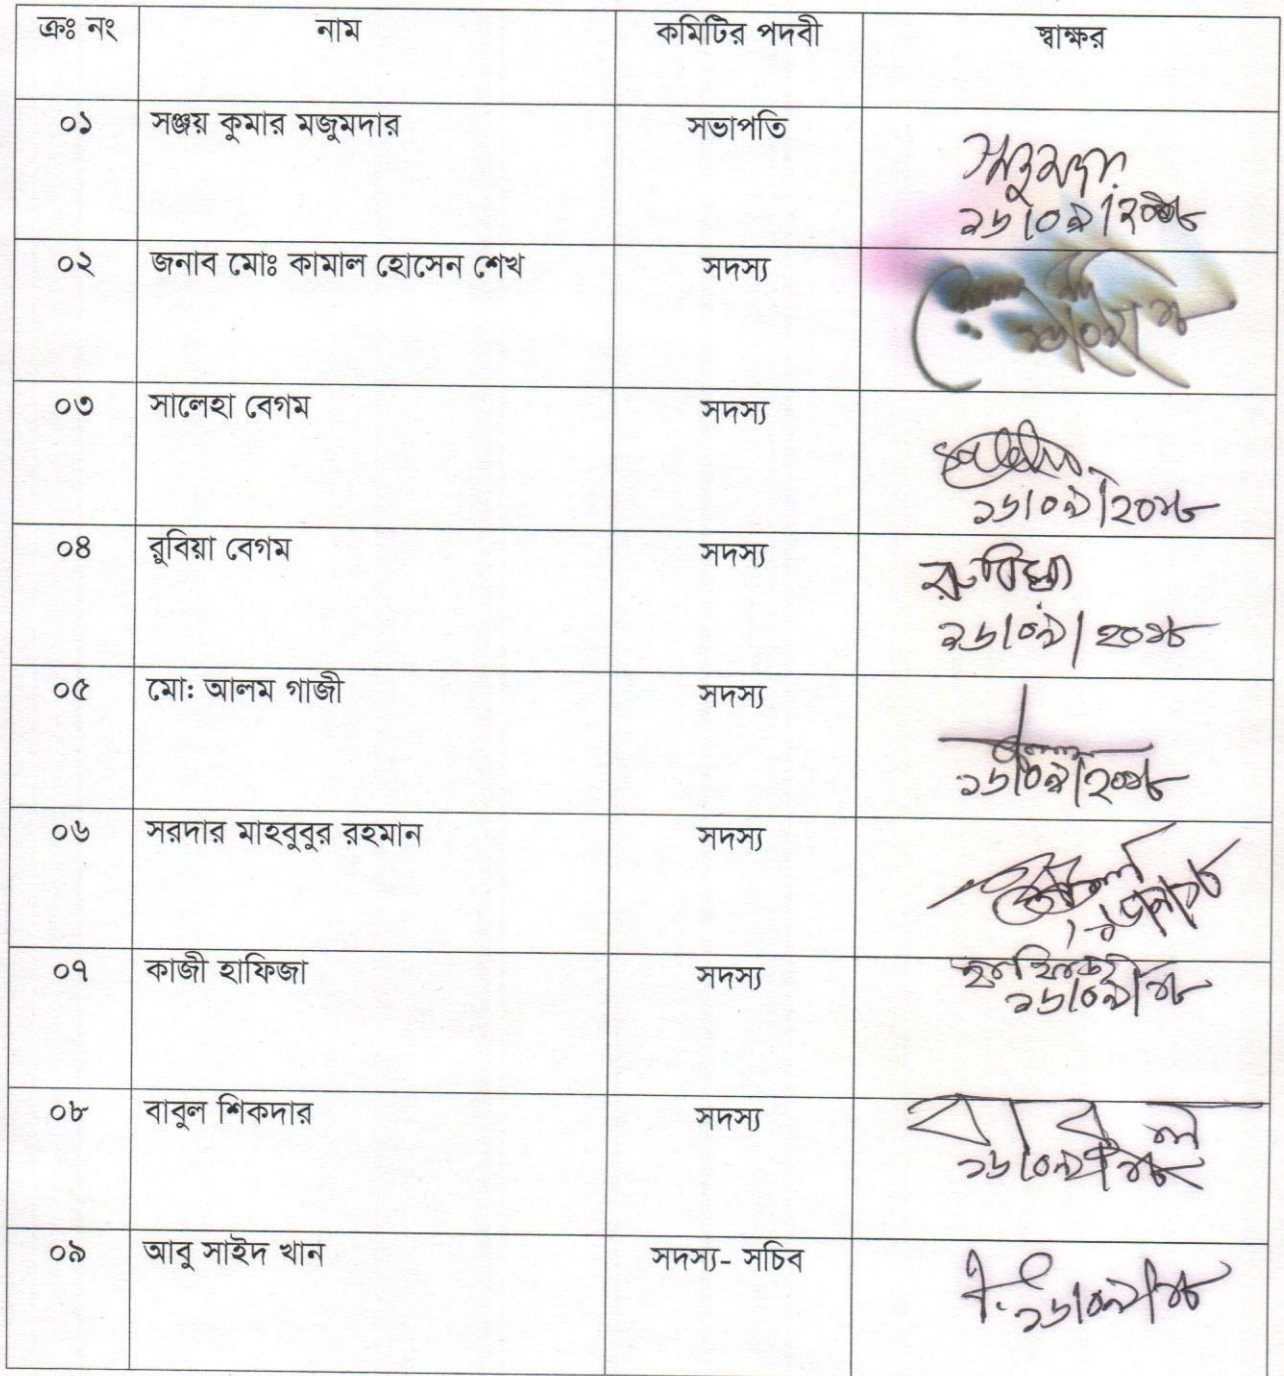 ক্রঃ নং নাম কমিটির পদবী স্বাক্ষর
০১ সঞ্জয় কুমার মজুমদার সভাপতি
১৬/০৯/২০১৮
০২ জনাব মোঃ কামাল হোসেন শেখ সদস্য
১৬/০৯/১৮
০৩ সালেহা বেগম সদস্য
১৬/০৯/২০১৮
০৪ রুবিয়া বেগম সদস্য রুবিয়া
১৬/০৯/২০১৮
০৫ মো: আলম গাজী সদস্য
১৬/০৯/২০১৮
০৬ সরদার মাহবুবুর রহমান সদস্য
০৭ কাজী হাফিজা সদস্য
১৬/০৯/১৮
০৮ বাবুল শিকদার সদস্য বাবুল
১৬/০৯/১৮
০৯ আবু সাইদ খান সদস্য- সচিব
১৬/০৯/১৮